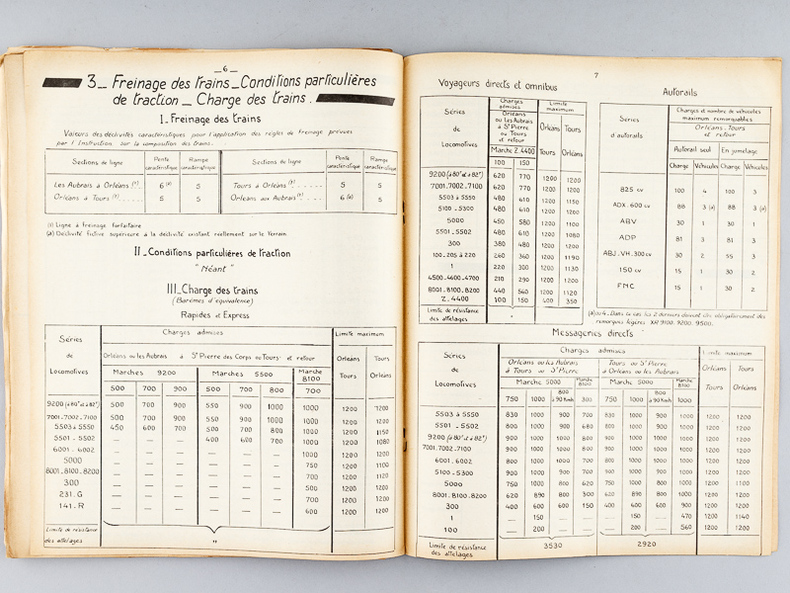 _6_
3_ Freinage des trains_Conditions particulières
de traction _ Charge des trains.
I_Freinage des trains
Valeurs des déclivités caractéristiques pour l'application des règles de freinage prévues
par l'Instruction sur la composition des trains.
Sections de ligne Pente caractéristique Rampe caractéristique Sections de ligne Pente caractéristique Rampe caractéristique
Les Aubrais à Orléans (1) 6 (2) 5 Tours à Orléans (1) 5 5
Orléans à Tours (1) 5 5 Orléans aux Aubrais (1) 6 (2) 5
(1) Ligne à freinage forfaitaire
(2) Déclivité fictive supérieure à la déclivité existant réellement sur le terrain.
II_Conditions particulières de traction
"Néant"
III_Charge des trains
(Barèmes d'équivalence)
Rapides et Express
Séries de Locomotives
Charges admises
Limite maximum
Orléans ou les Aubrais à St Pierre des Corps ou Tours et retour
Orléans Tours
Tours Orléans
Marches 9200 Marches 5500 Marche 8100
500 700 900 500 700 800 700
9200 (à 80t et à 82t) 500 700 900 550 900 1000 1000 1200 1200
7001.7002.7100 500 700 900 550 900 1000 1000 1200 1200
5503 à 5550 450 600 700 500 700 800 1000 1200 1150
5501_5502 _ _ _ 400 600 700 1000 1200 1080
6001_6002 _ _ _ _ _ _ 1000 1200 1200
5000 _ _ _ _ _ _ 750 1200 1100
8001.8100.8200 _ _ _ _ _ _ 700 1200 1120
300 _ _ _ _ _ _ 500 1200 1200
231.G _ _ _ _ _ _ 700 1200 1200
141.R _ _ _ _ _ _ 600 1200 1200
Limite de résistance
des attelages
7
Voyageurs directs et omnibus
Séries de Locomotives
Charges admises
Limite maximum
Orléans ou les Aubrais à St Pierre ou Tours et retour
Orléans Tours
Tours Orléans
Marche Z.4400
100 150
9200 (à 80t et à 82t) 620 770 1200 1200
7001.7002.7100 620 770 1200 1200
5503 à 5550 480 610 1200 1150
5100_5300 480 610 1200 1200
5000 450 580 1200 1100
5501_5502 480 610 1200 1080
300 380 480 1200 1200
100_205 à 220 260 360 1200 1190
1 220 300 1200 1130
4500_4600_4700 210 290 1200 1200
8001_8100_8200 440 560 1200 1120
Z_4400 100 150 400 350
Limite de résistance
des attelages
Autorails
Séries d'autorails
Charges et nombre de véhicules
maximum remorquables
Orléans_Tours
et retour
Autorail seul En jumelage
Charge Véhicules Charge Véhicules
825 cv 100 4 100 3
ADX_600 cv 88 3 (a) 88 3 (a)
ABV 30 1 30 1
ADP 81 3 81 3
ABJ_VH_300 cv 30 2 55 3
150 cv 15 1 30 2
FNC 15 1 30 2
(a) ou 4_Dans ce cas les 2 derniers doivent être obligatoirement des
remorques légères XR 9100.9200_9500.
Messageries directs
Séries de Locomotives
Charges admises
Limite maximum
Orléans ou les Aubrais à Tours ou St Pierre
Tours ou St Pierre à Orléans ou les Aubrais
Orléans Tours
Tours Orléans
Marche 5000 Marche 8100 Marche 5000 Marche 8100
750 1000 800 à 90 Km/h 300 750 1000 800 à 90 Km/h 1000
5503 à 5550 830 1000 900 700 830 1000 900 1000 1200 1200
5501_5502 800 1000 900 680 800 1000 900 1000 1200 1200
9200 (à 80t et à 82t) 900 1000 1000 800 900 1000 1000 1000 1200 1200
7001.7002.7100 900 1000 1000 800 900 1000 1000 1000 1200 1200
6001.6002 800 1000 1000 700 800 1000 1000 1000 1200 1200
5100_5300 900 1000 900 700 900 1000 900 1000 1200 1200
5000 750 1000 800 620 750 1000 800 1000 1200 1200
8001.8100.8200 620 890 800 300 620 890 800 1000 1200 1200
300 400 600 600 150 400 600 600 900 1200 1200
1 _ 150 _ _ _ 150 _ 470 1200 1140
100 _ 200 _ _ _ 200 _ 560 1200 1200
Limite de résistance
des attelages 3530 2920